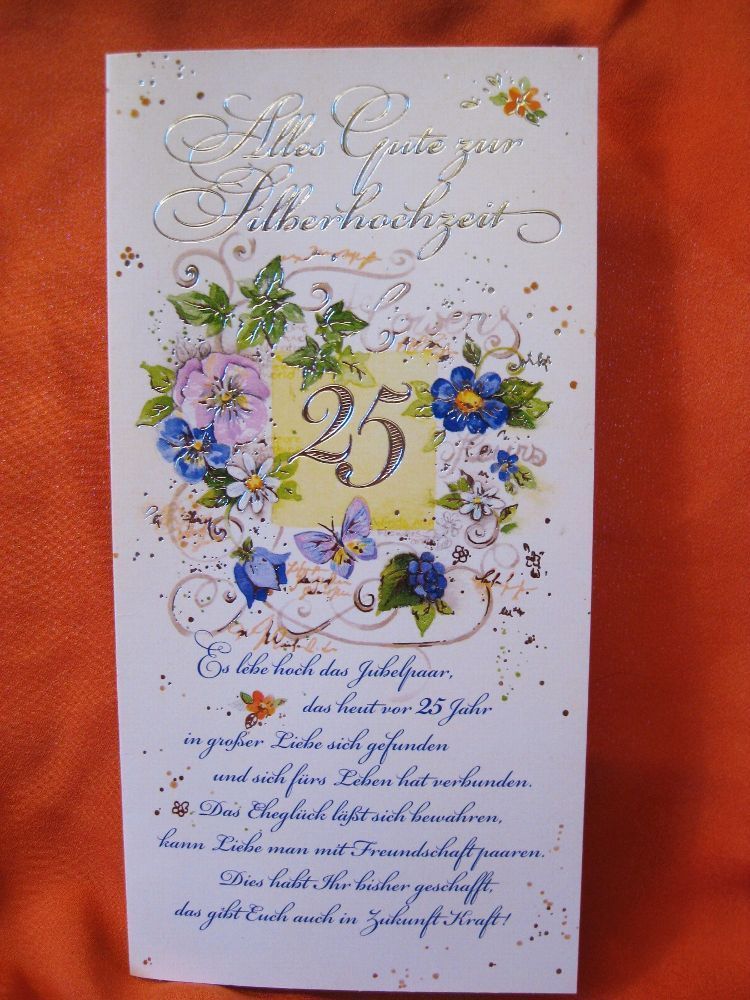 Alles Gute zur
Silberhochzeit
flowers
25
flowers
Es lebe hoch das Jubelpaar,
das heut vor 25 Jahr
in großer Liebe sich gefunden
und sich fürs Leben hat verbunden.
Das Eheglück läßt sich bewahren,
kann Liebe man mit Freundschaft paaren.
Dies habt Ihr bisher geschafft,
das gibt Euch auch in Zukunft Kraft!